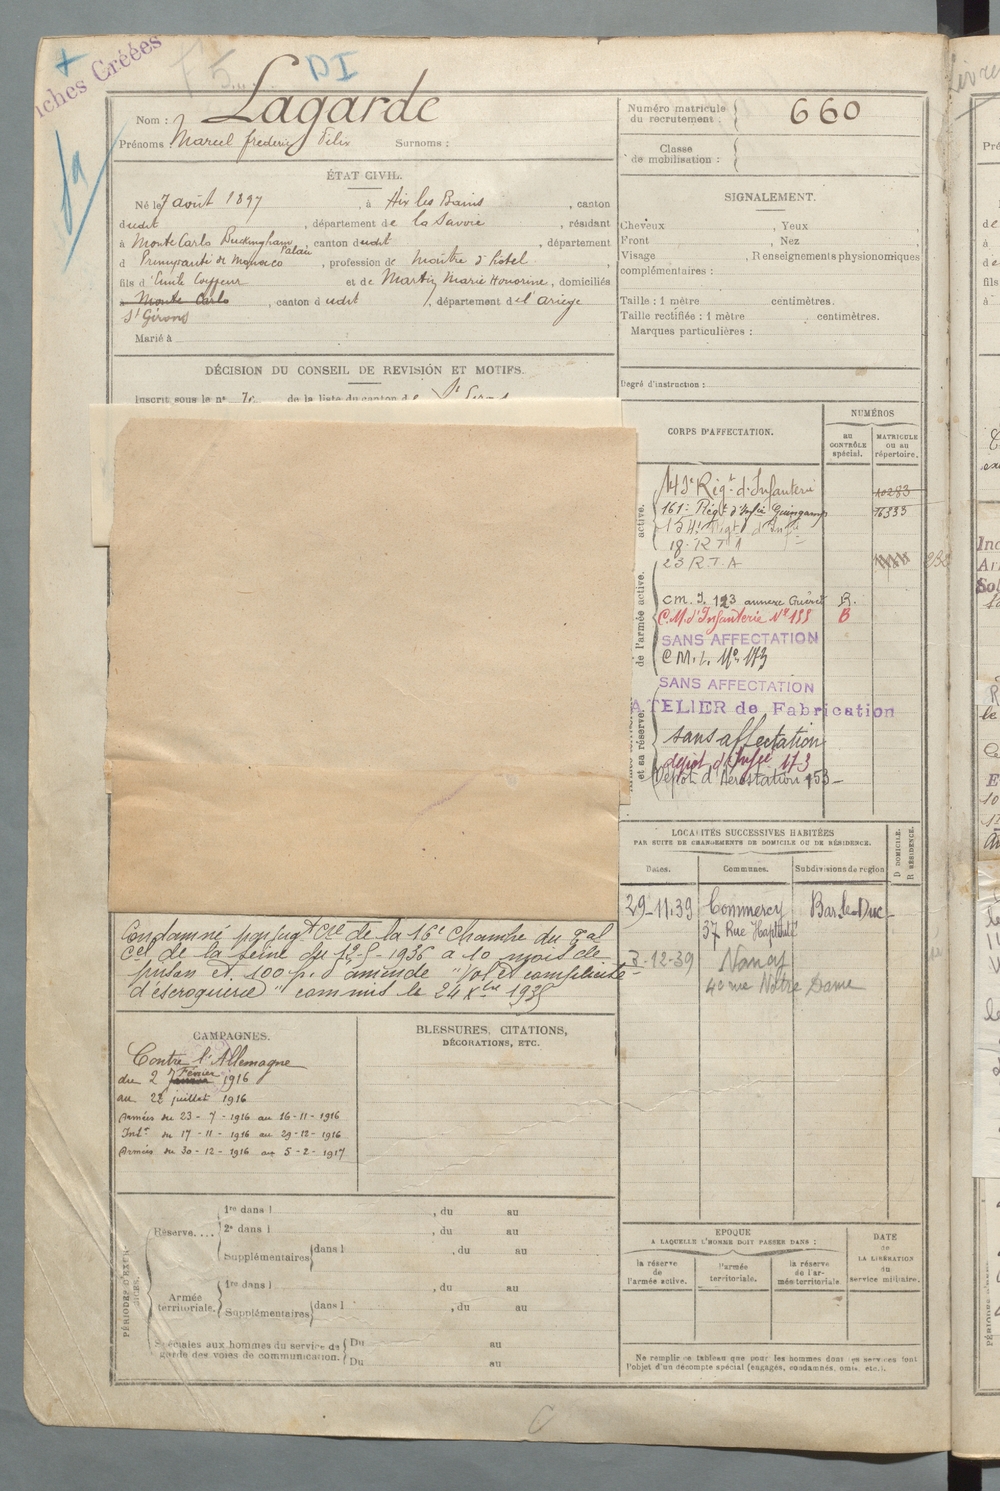 ches Créées
DI
Nom : Lagarde
Prénoms Marcel frederic Félix Surnoms :
Numéro matricule du recrutement : 660
Classe de mobilisation :
ÉTAT CIVIL.
Né le 7 août 1897, à Aix les Bains, canton
dudit, département de la Savoie, résidant
à Monte Carlo Buckingham Palais, canton dudit, département
d Principauté de Monaco, profession de maître d'hôtel
fils d'Emile Coiffeur et de Martin Marie Honorine, domiciliés
à Monte Carlo, canton dudit, département de l'ariège
St Girons
Marié à
SIGNALEMENT.
Cheveux , Yeux
Front , Nez
Visage , Renseignements physionomiques
complémentaires :
Taille : 1 mètre centimètres.
Taille rectifiée : 1 mètre centimètres.
Marques particulières :
Degré d'instruction :
DÉCISION DU CONSEIL DE REVISION ET MOTIFS.
Inscrit sous le n° de la liste du canton de St Girons
CORPS D'AFFECTATION.
NUMÉROS
au CONTRÔLE spécial.
MATRICULE ou au répertoire.
active.
143e Régt d'Infanterie 10283
161e Régt d'Infie Guingamp 16333
154e Régt d'Infie
18 R T A
23 R.T.A
de l'armée active.
C.M.I. 123 annexe Guéret R.
C.M. d'Infanterie N° 155 B
SANS AFFECTATION
C M.I. N° 173
SANS AFFECTATION
ATELIER de Fabrication
et sa réserve.
sans affectation
dépot d'Infie 173
Dépôt d'Aérostation 153
LOCALITÉS SUCCESSIVES HABITÉES
PAR SUITE DE CHANGEMENTS DE DOMICILE OU DE RÉSIDENCE.
Dates. Communes. Subdivisions de région D DOMICILE. R RÉSIDENCE.
29-11-39 Commercy Bar-le-Duc
37 Rue
-12-39 Nancy
40 rue Notre Dame
Condamné par jugt Cel de la 16e Chambre du Tal
Cel de la Seine du 12-5-1936 à 10 mois de
prison et 100 f. d'amende "Vol et complicité
d'escroquerie" commis le 24 Xbre 1935
CAMPAGNES.
Contre l'Allemagne
du 2 Février 1916
au 22 juillet 1916
Armées du 23-7-1916 au 16-11-1916
Intr du 17-11-1916 au 29-12-1916
Armées du 30-12-1916 au 5-2-1917
BLESSURES, CITATIONS,
DÉCORATIONS, ETC.
PÉRIODES D'EXERCICES.
Réserve....
1re dans l , du au
2e dans l , du au
Supplémentaires dans l , du au
Armée territoriale.
1re dans l , du au
Supplémentaires dans l , du au
Spéciales aux hommes du service de garde des voies de communication. Du au
Du au
EPOQUE
A LAQUELLE L'HOMME DOIT PASSER DANS :
la réserve de l'armée active.
l'armée territoriale.
la réserve de l'armée territoriale.
DATE de LA LIBÉRATION du service militaire.
Ne remplir ce tableau que pour les hommes dont les services font
l'objet d'un décompte spécial (engagés, condamnés, omis, etc.).